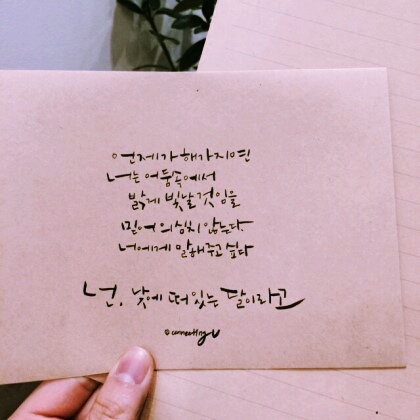 언제가 해가지면
너는 어둠속에서
밝게 빛날 것임을
믿어 의심치 않는다.
너에게 말해주고 싶다
넌, 낮에 떠 있는 달이라고